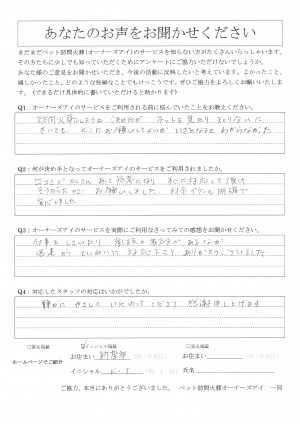 あなたのお声をお聞かせください
まだまだペット訪問火葬(オーナーズアイ)のサービスを知らない方がたくさんいらっしゃいます。
その方たちに少しでも知っていただくためにアンケートにご協力いただけないでしょうか。
あなた様のご意見をお聞かせいただき、今後の活動に反映したいと考えています。よかったこと、
嬉しかったこと、どのような些細なことでもけっこうです。ぜひご協力をよろしくお願いいたします。
(できるだけ具体的に書いていただけると助かります。)
Q1:オーナーズアイのサービスをご利用される前に悩んでいたことをお教えください。
訪問火葬にしようと 決めたが ネットを見たり 知らないに
どこにお願いしてよいか いざとなると わからなかった
Q2:何が決め手となってオーナーズアイのサービスをご利用されましたか。
口コミがたくさん あって 参考になり すぐに対応して頂け
お願いしました 料金プランも 明確で
安心しました
Q3:オーナーズアイのサービスを実際にご利用なさってみての感想をお聞かせください。
仕事を していたり
ていねいに 対応して下さり ありがとうございました
Q4:対応したスタッフの対応はいかがでしたか。
静かに やさしく いたわって くださり 感謝申し上げます
□実名掲載 ☑イニシャル掲載 □匿名掲載
ホームページでご紹介
お住まい 新居浜市 お住まい
イニシャル K・T 氏名
ご協力、本当にありがとうございました。 ペット訪問火葬オーナーズアイ 一同